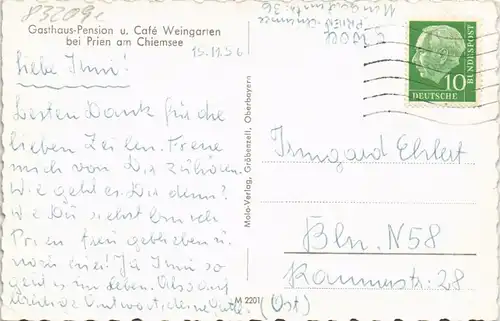 83209e
Gasthaus-Pension u. Café Weingarten
bei Prien am Chiemsee
15.11.56
Liebe Irmi!
Besten Dank für die
lieben Zeilen. Freue
mich von Dir zuhören.
Wie geht es Dir denn?
Wie Du siehst bin ich
Prien treu geblieben u.
noch hier! Ja Irmi so
geht es im Leben. Also auf
Wiedersehen
Molo-Verlag, Gröbenzell, Oberbayern
M 2201
10
DEUTSCHE
BUNDESPOST
Irmgard Ehlert
Bln. N58
(Ost)